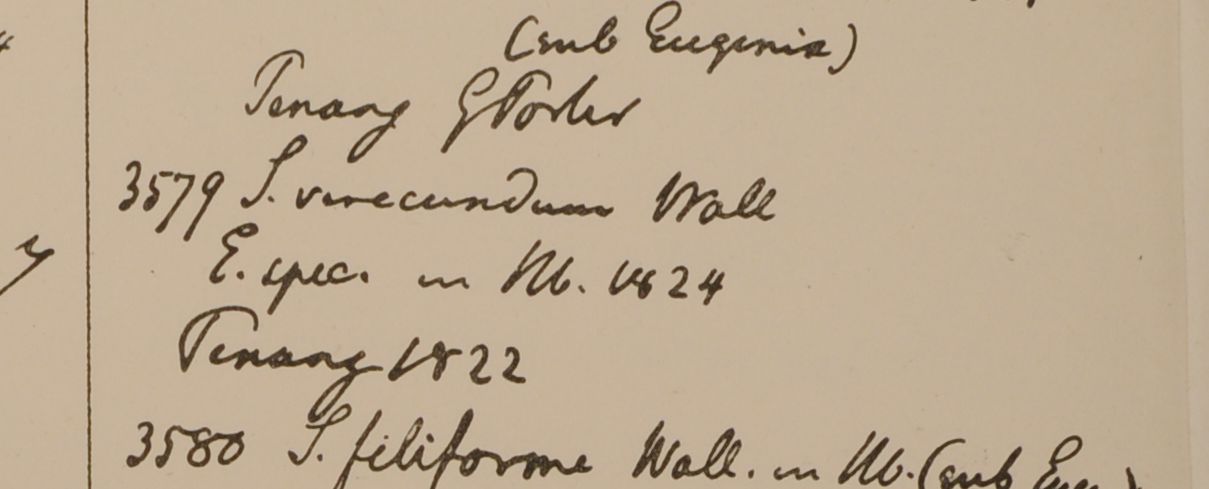 (sub Eugenia)
Penang G Porter
3579 S. verecundum Wall
E. spec. in Hb. 1824
Penang 1822
3580 S. filiforme Wall. in Hb. (sub Eug.)